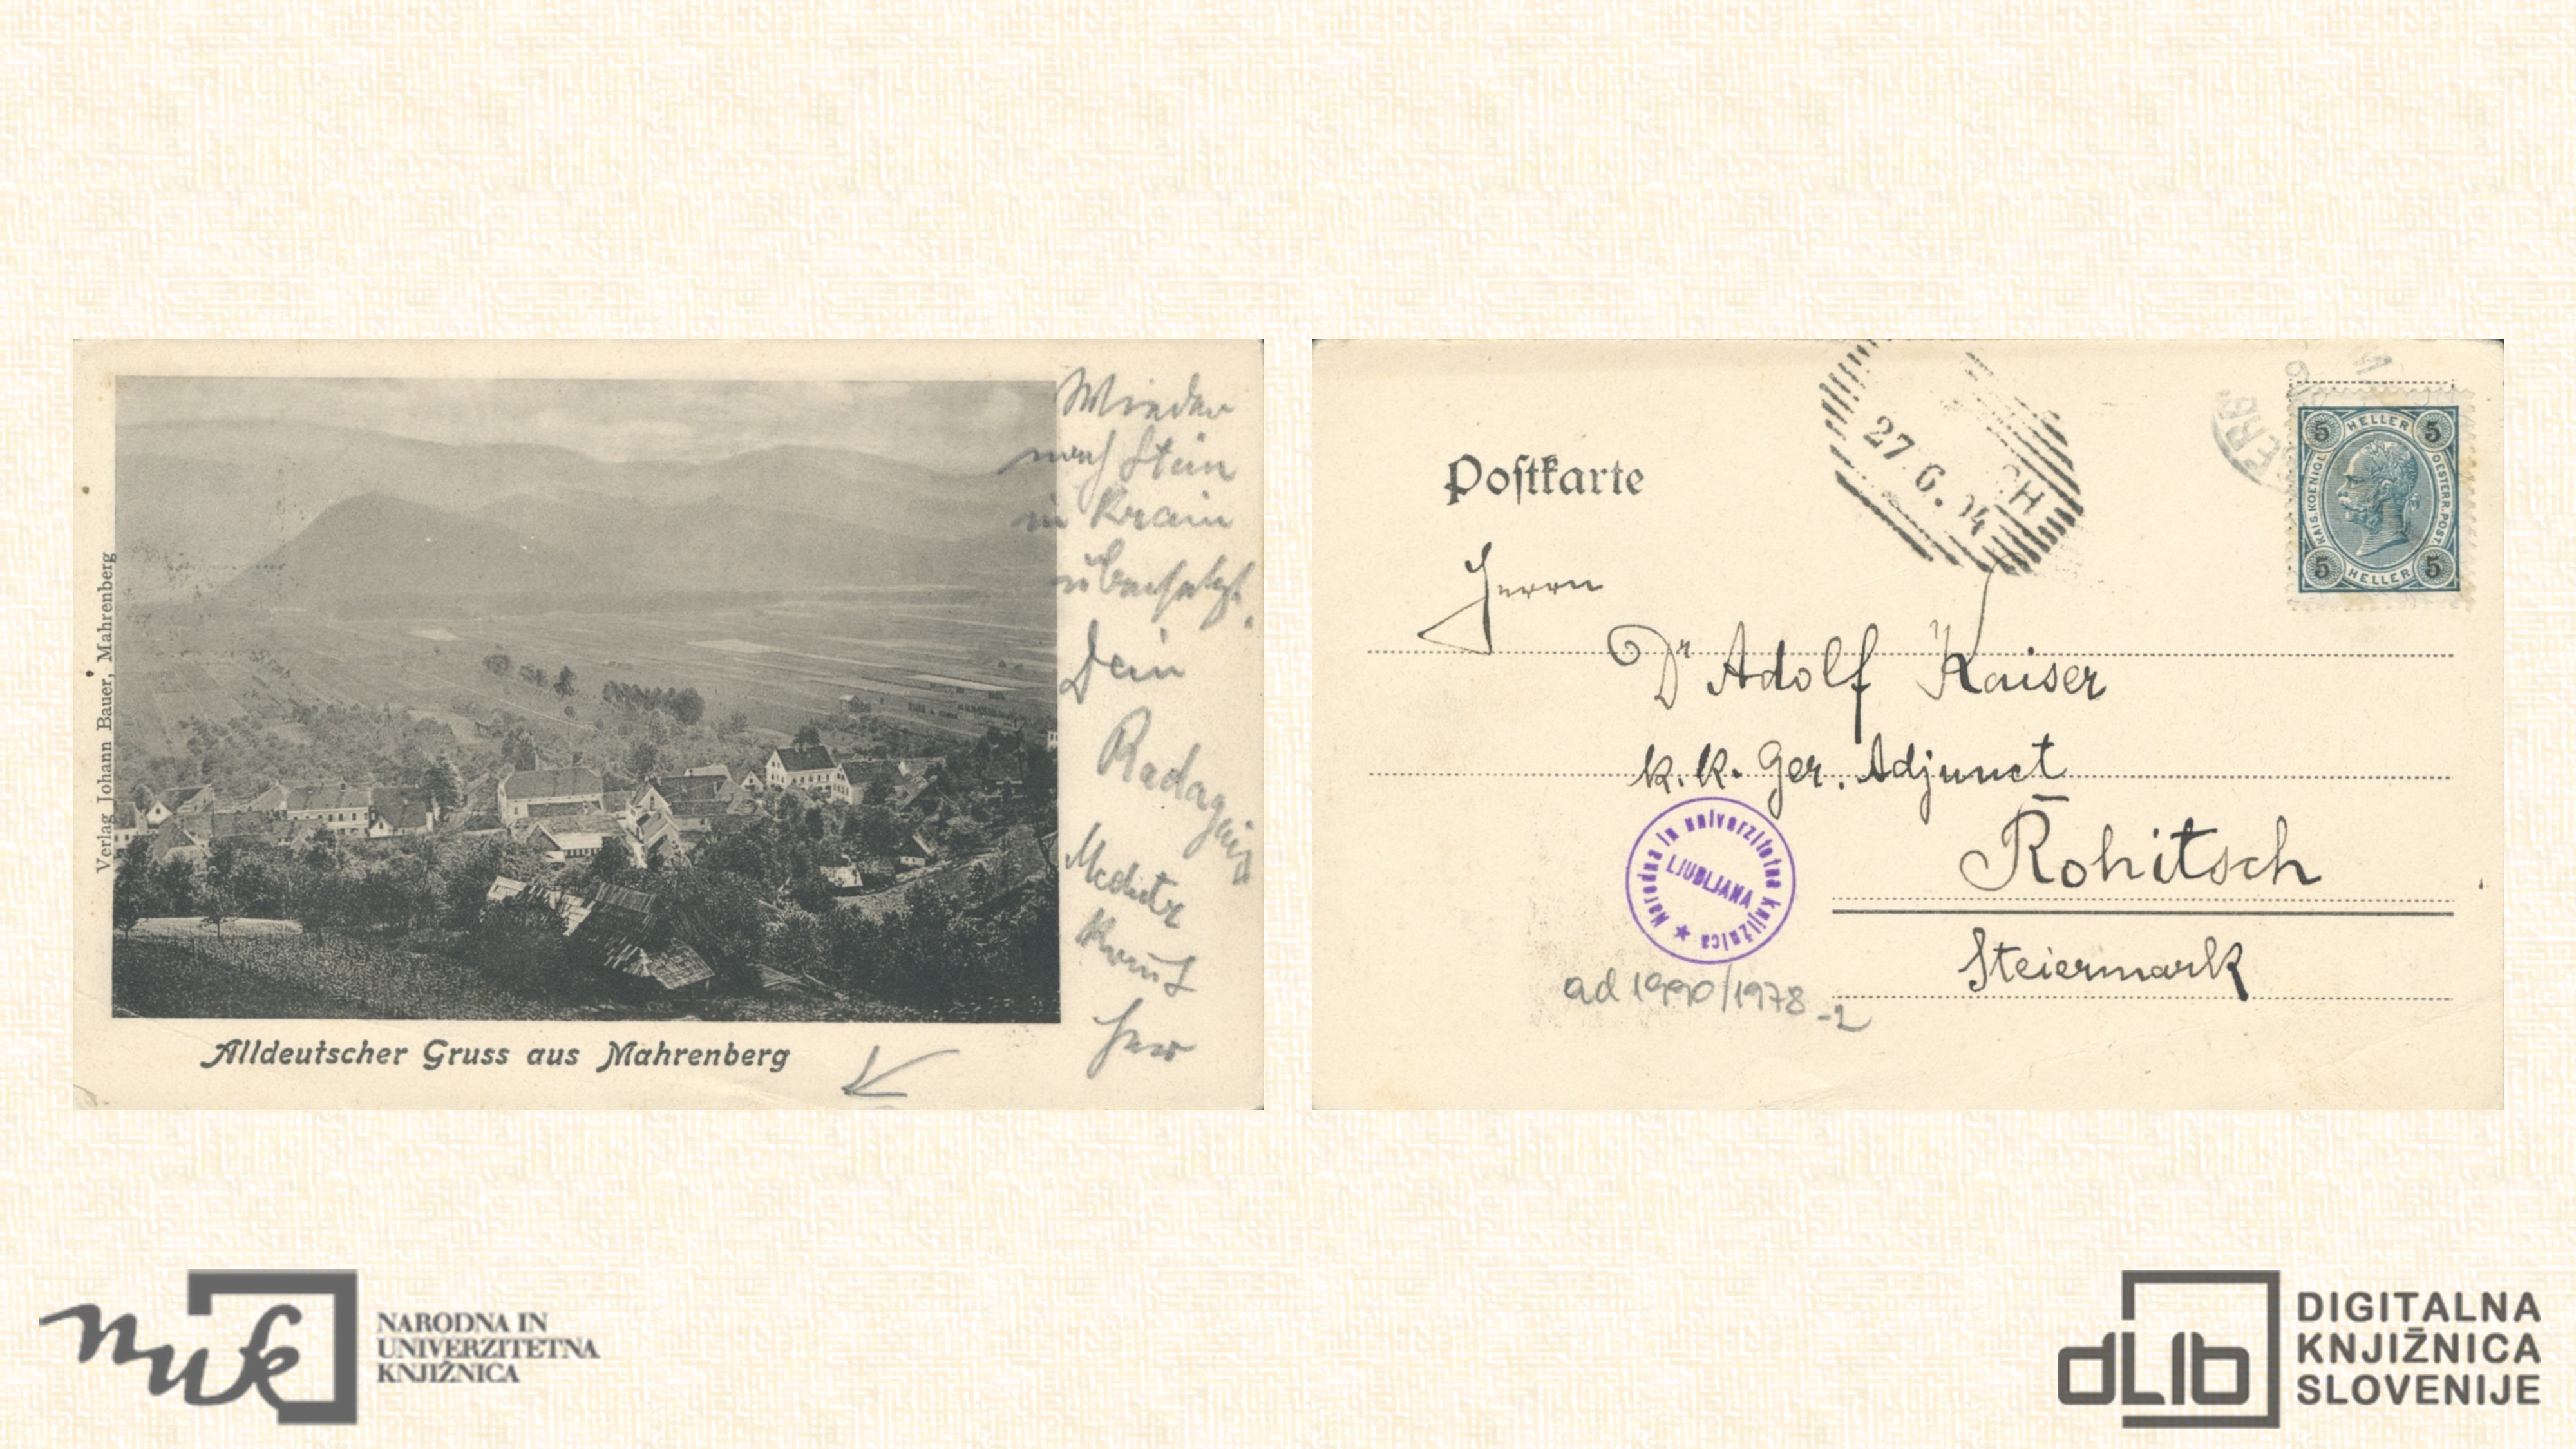 Wieder
nach Stein
in Krain
übersetzt.
Dein
Verlag Johann Bauer, Mahrenberg
Alldeutscher Gruss aus Mahrenberg
Postkarte
27.6.04
5 HELLER 5
KAIS. KOENIGL. OESTERR. POST.
5 HELLER 5
Herrn
Dr Adolf Kaiser
k. k. Ger. Adjunct
Rohitsch
Steiermark
Narodna in univerzitetna knjižnica
LJUBLJANA
ad 1990/1978-2
nuk
NARODNA IN
UNIVERZITETNA
KNJIŽNICA
dLib
DIGITALNA
KNJIŽNICA
SLOVENIJE